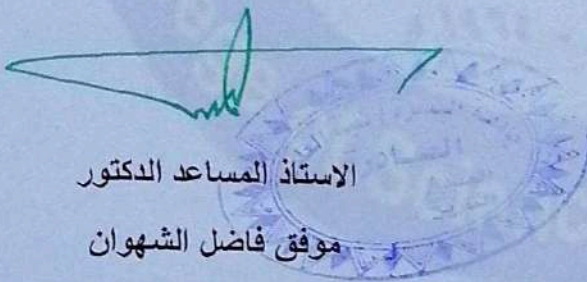 الصادرة
الاستاذ المساعد الدكتور
موفق فاضل الشهوان